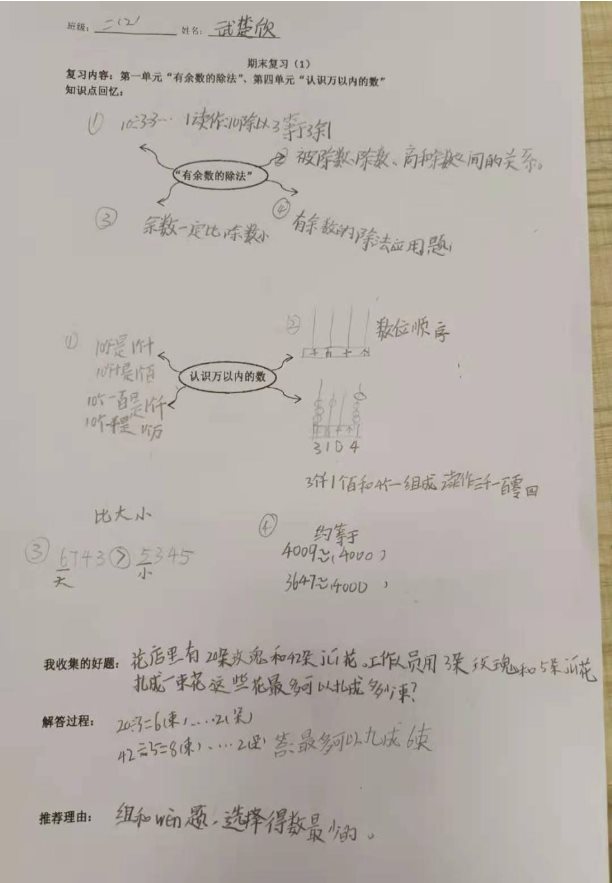 班级: 二(2) 姓名: 武楚欣
期末复习（1）
复习内容：第一单元“有余数的除法”、第四单元“认识万以内的数”
知识点回忆：
① 10÷3=3…1读作:10除以3等于3余1
② 被除数、除数、商和余数之间的关系。
“有余数的除法”
③ 余数一定比除数小
④ 有余数的除法应用题
① 10个一是1个十
10个十是1个百
10个一百是1个千
10个一千是1个万
② 数位顺序
千 百 十 个
认识万以内的数
3 1 0 4
3个千1个百和4个一组成 读作三千一百零四
比大小
③ 6743>5345
大 小
④ 约等于
4009≈(4000)
3647≈(4000)
我收集的好题：花店里有20朵玫瑰和42朵百合花。工作人员用3朵玫瑰和5朵百合花
扎成一束花这些花最多可以扎成多少束?
解答过程： 20÷3=6(束)……2(朵)
42÷5=8(束)……2(朵) 答:最多可以扎成6束
推荐理由： 组和问题,选择得数最少的。